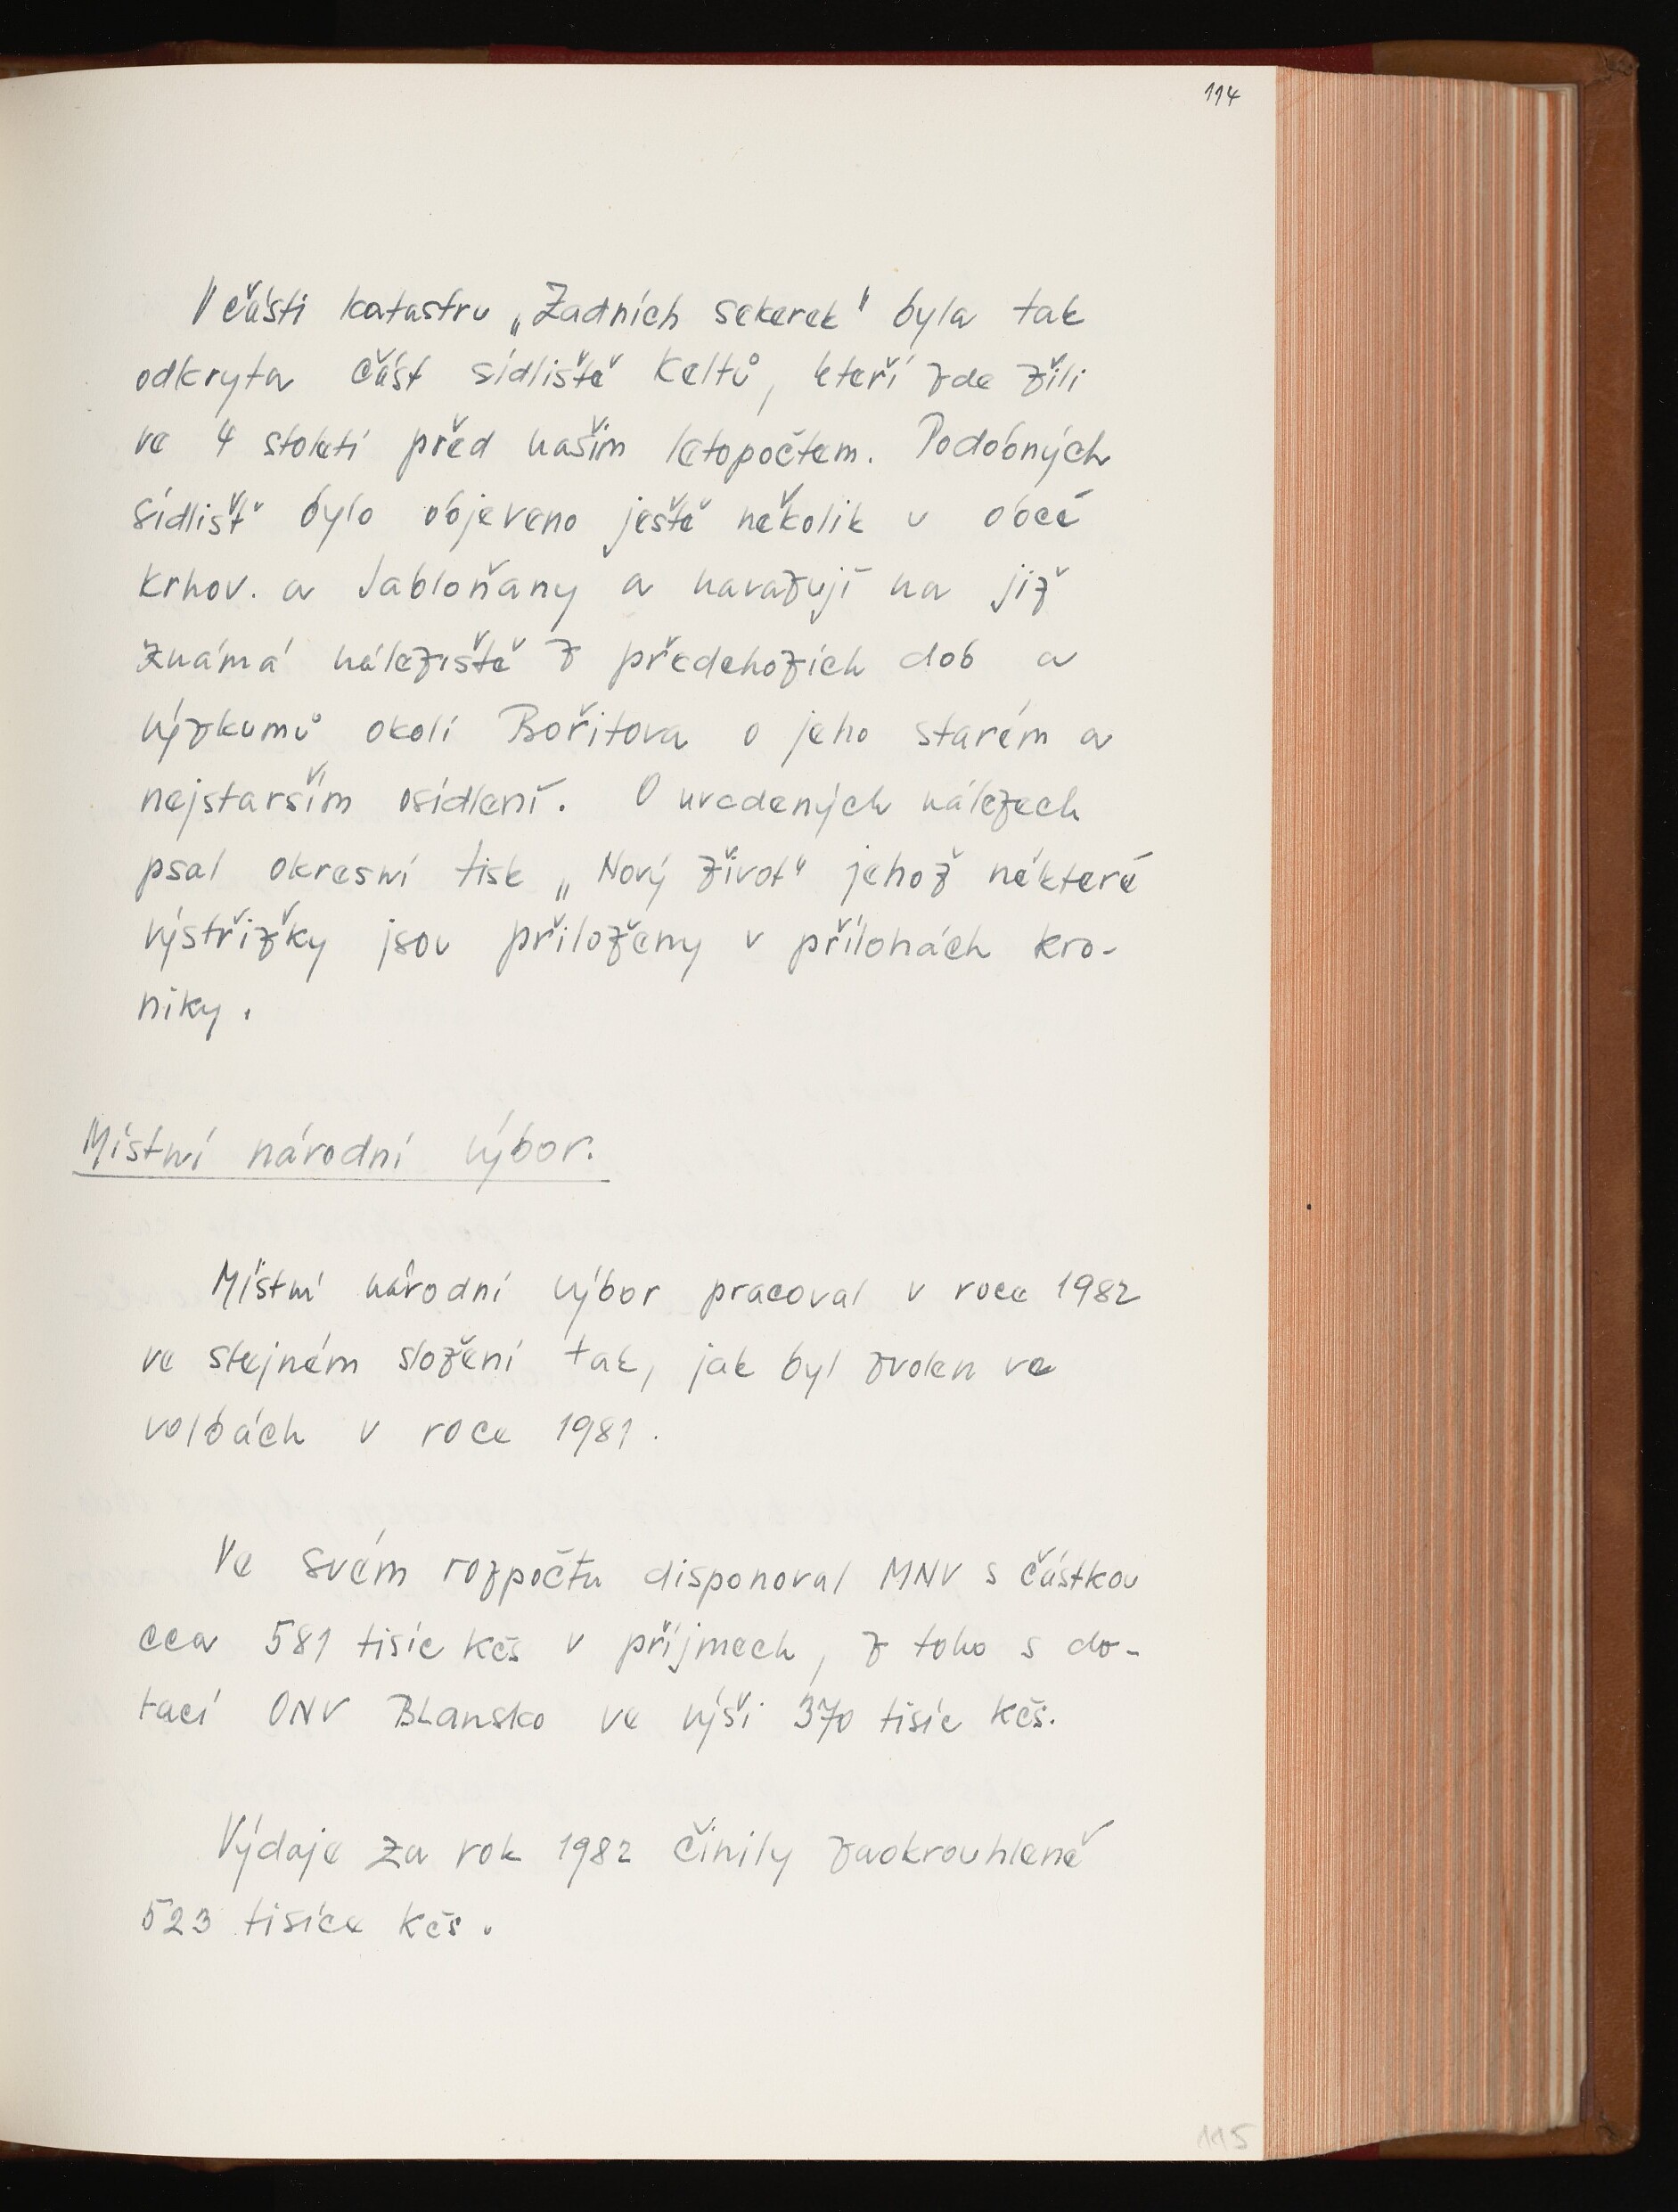 114
V části katastru „Zadních sekerek" byla tak
odkryta část sídliště Keltů, kteří zde žili
ve 4 století před naším letopočtem. Podobných
sídlišť bylo objeveno ještě několik u obcé
Krhov. a Jabloňany a navazují na již
známá náleziště z předchozích dob a
výzkumů okolí Bořitova o jeho starém a
nejstarším osídlení. O uvedených nálezech
psal okresní tisk „Nový život" jehož některé
výstřižky jsou přiloženy v přílohách kro-
niky.
Místní národní výbor.
Místní národní výbor pracoval v roce 1982
ve stejném složení tak, jak byl zvolen ve
volbách v roce 1981.
Ve svém rozpočtu disponoval MNV s částkou
cca 581 tisíc Kčs v příjmech, z toho s do-
tací ONV Blansko ve výši 370 tisíc Kčs.
Výdaje za rok 1982 činily zaokrouhleně
523 tisíce Kčs.
115